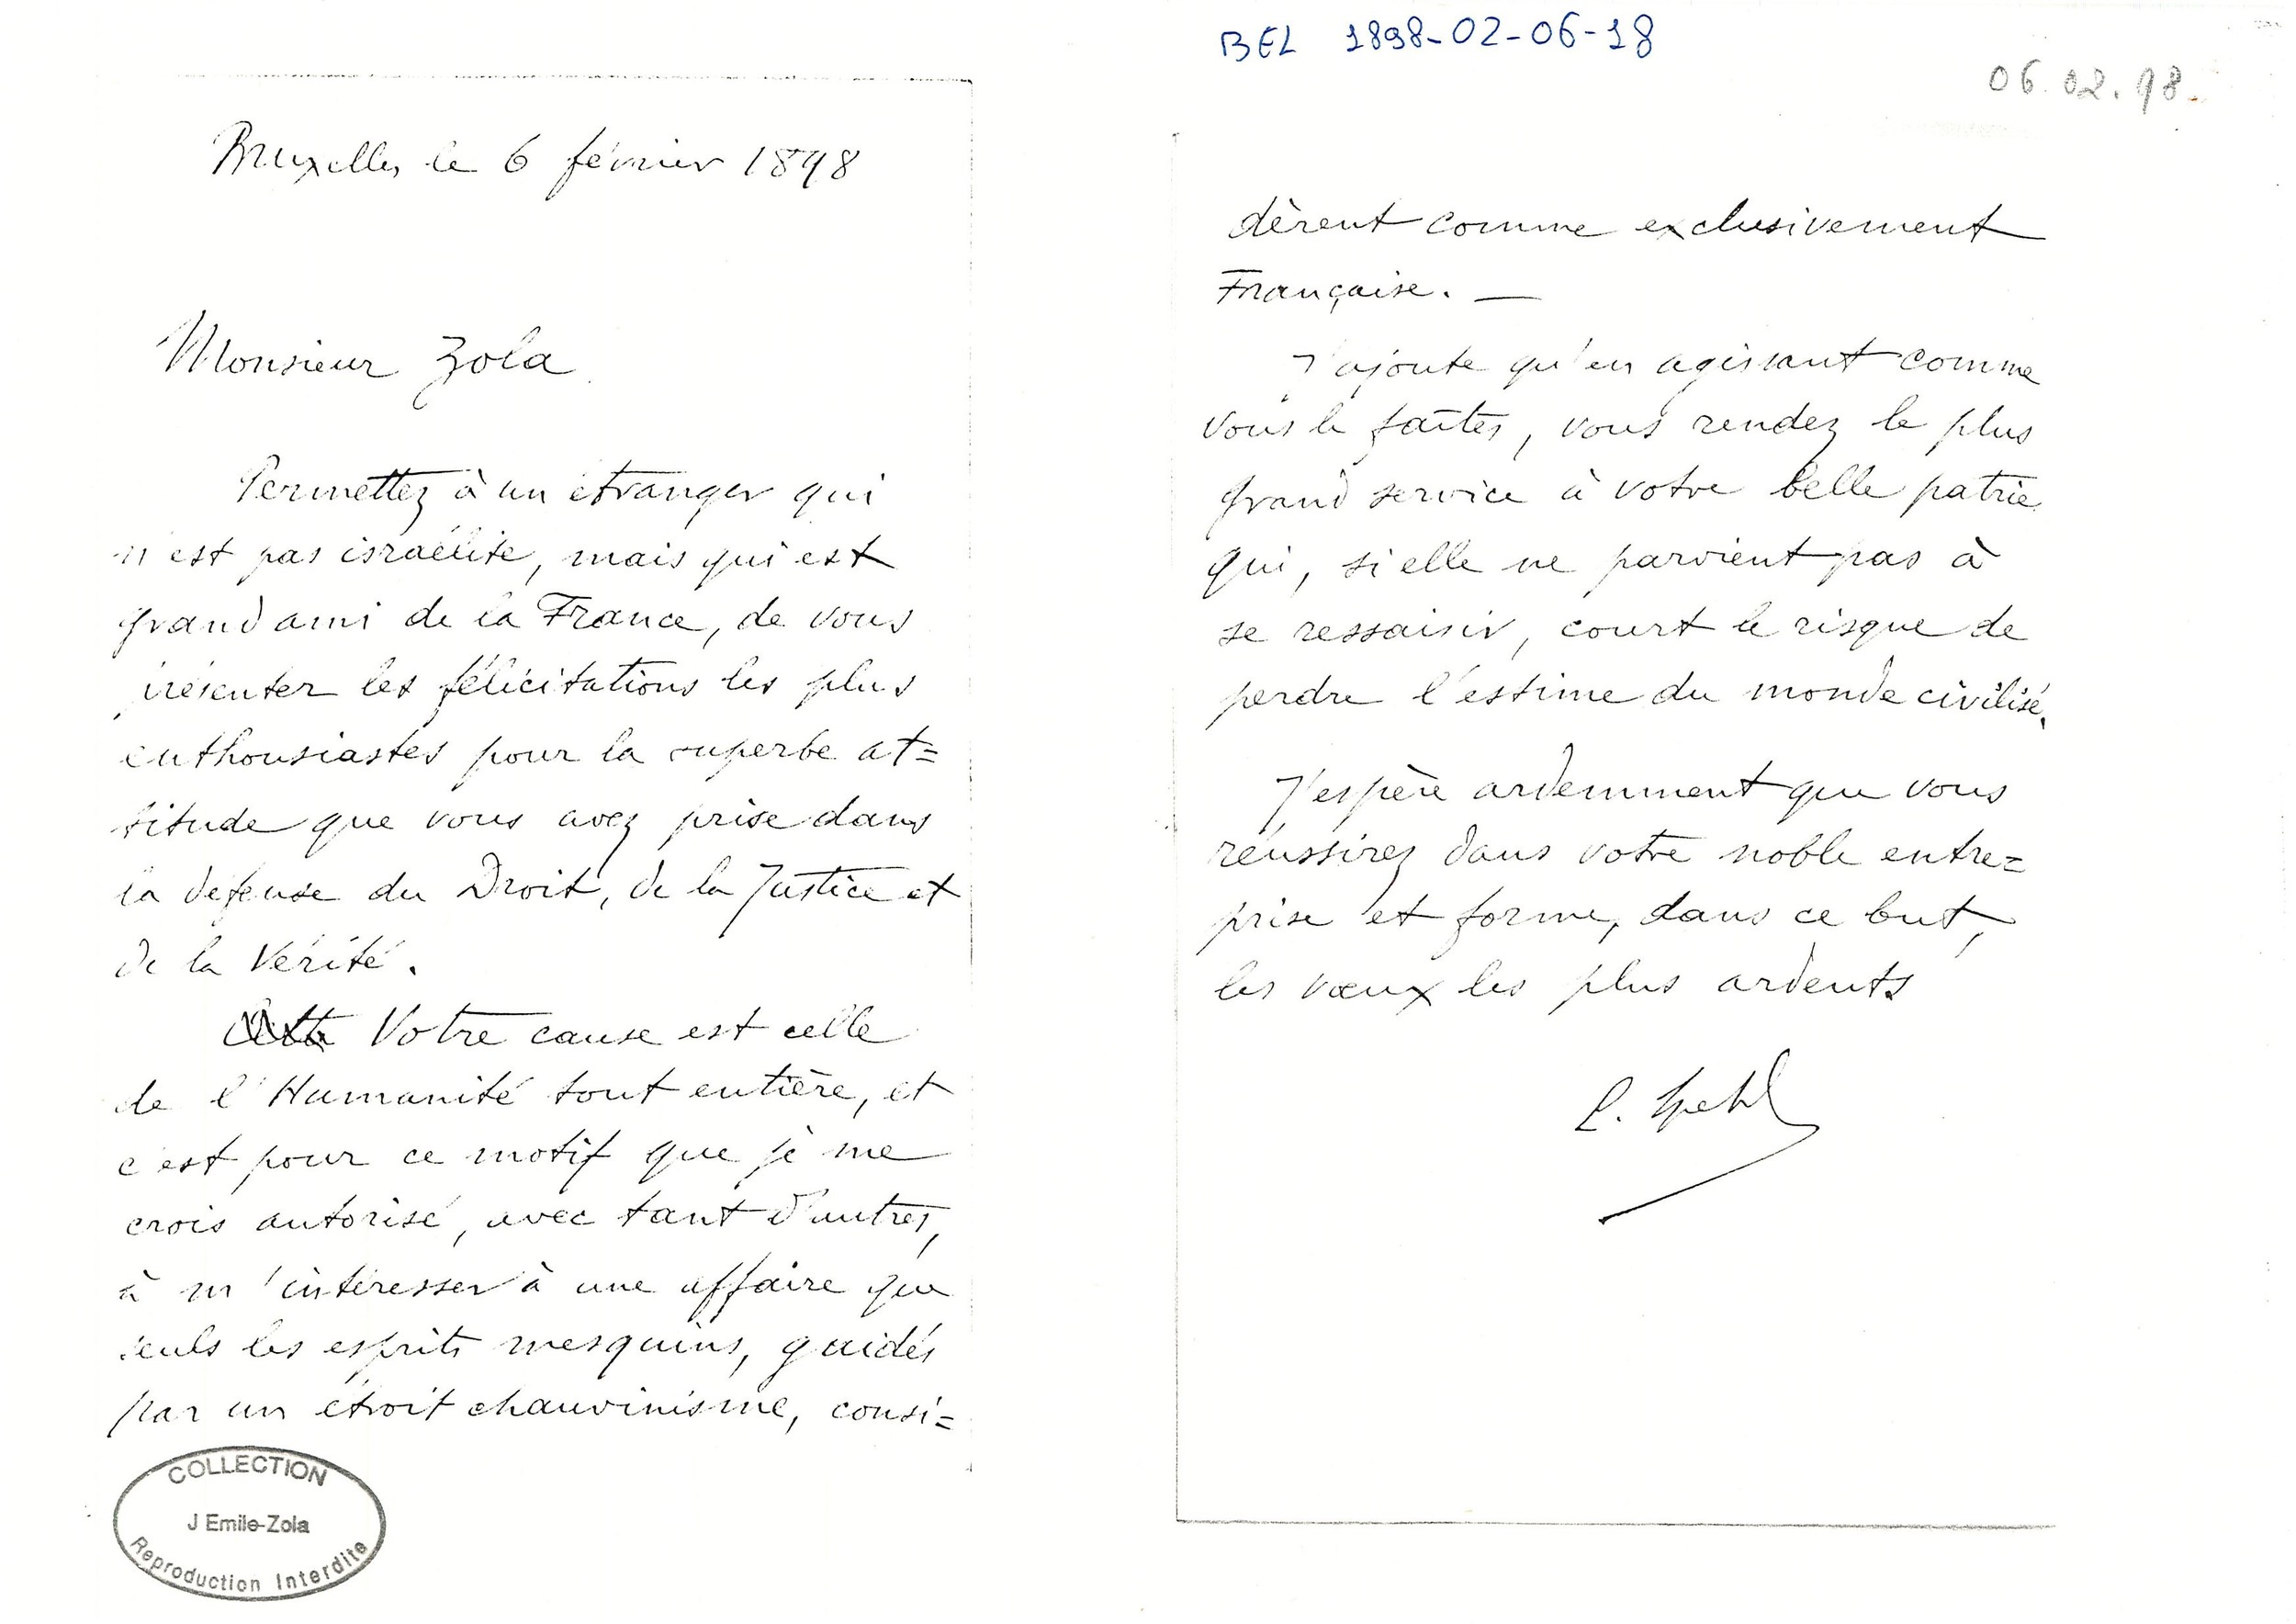 Bruxelles le 6 février 1898
Monsieur Zola
Permettez à un étranger qui
n'est pas israélite, mais qui est
grand ami de la France, de vous
présenter les félicitations les plus
enthousiastes pour la superbe at=
titude que vous avez prise dans
la défense du Droit, de la Justice et
de la Vérité.
Votre cause est celle
de l'Humanité tout entière, et
c'est pour ce motif que je me
crois autorisé, avec tant d'autres,
à m'intéresser à une affaire que
seuls les esprits mesquins, guidés
par un étroit chauvinisme, consi=
COLLECTION
J Emile-Zola
Reproduction Interdite
BEL 1898-02-06-18
06.02.98.
dèrent comme exclusivement
Française. —
J'ajoute qu'en agissant comme
vous le faîtes, vous rendez le plus
grand service à votre belle patrie
qui, si elle ne parvient pas à
se ressaisir, court le risque de
perdre l'estime du monde civilisé.
J'espère ardemment que vous
réussirez dans votre noble entre=
prise et forme, dans ce but,
les vœux les plus ardents